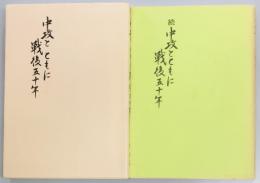 中政とともに
戦後五十年
続
中政とともに
戦後五十年